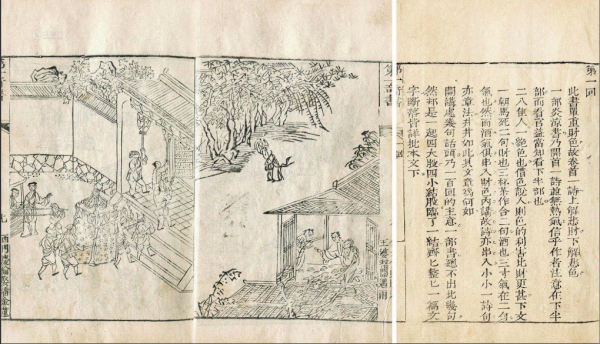 第一回
此書單重財色故卷首一詩上解悲財下解悲色
一部炎涼書乃開首一詩並無熱氣信乎作者注意在下半
部而看官益當知看下半部也
二八佳人一絕色也借色說入則色的利害比財更甚下文
一朝馬死二句財也三杯茶作合二句酒也三寸氣在二句
氣也然而酒氣俱串入財色內講故詩亦串入小小一詩句
亦章法井井如此其文章爲何如
開講處幾句話頭乃一百回的主意一部書總不出此幾句
然却是一起四大股四小結股臨了一結齊匕整匕一篇文
字斷落皆詳批本文下
第一奇書
第一奇書